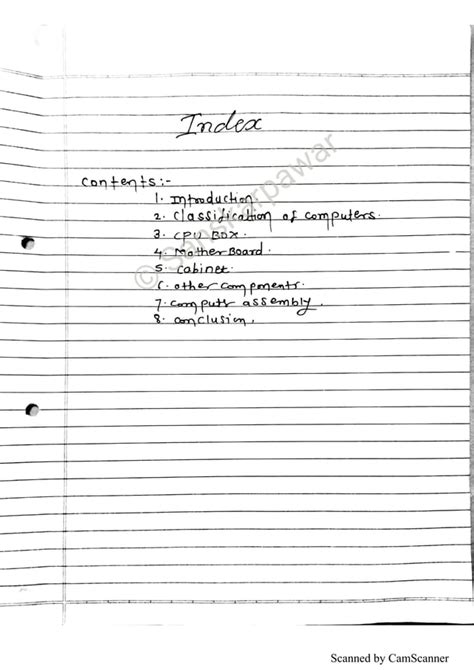 Index
Contents:-
1. Introduction
2. Classification of computers.
3. CPU BOX.
4. MotherBoard.
5. Cabinet.
6. other components.
7. Computr assembly.
8. conclusion.
© Sanskarpawar
Scanned by CamScanner